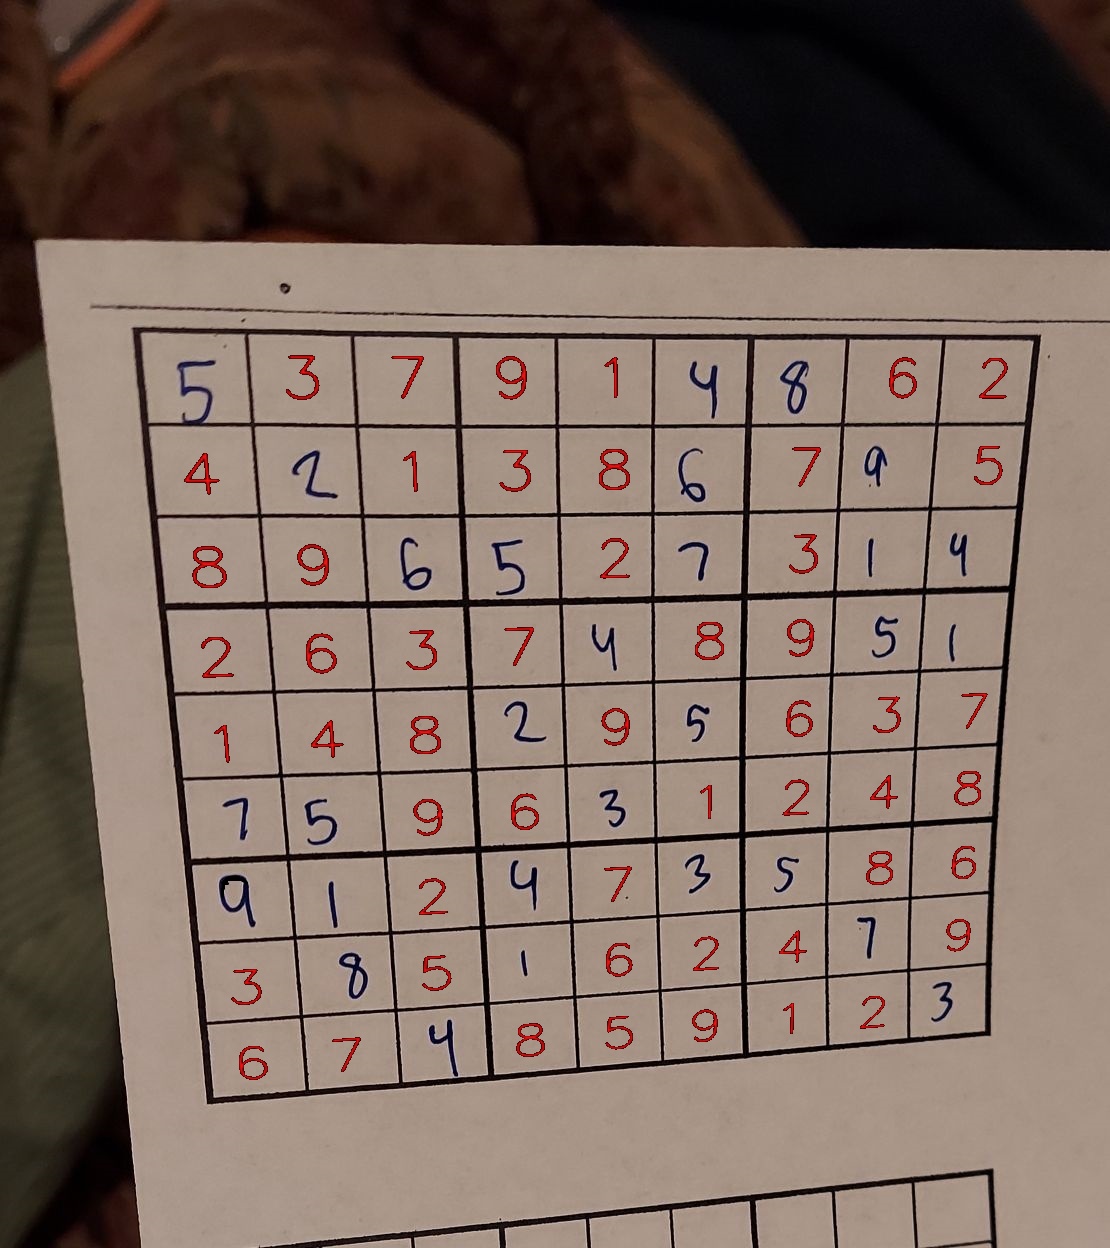 5 3 7 9 1 4 8 6 2
4 2 1 3 8 6 7 9 5
8 9 6 5 2 7 3 1 4
2 6 3 7 4 8 9 5 1
1 4 8 2 9 5 6 3 7
7 5 9 6 3 1 2 4 8
9 1 2 4 7 3 5 8 6
3 8 5 1 6 2 4 7 9
6 7 4 8 5 9 1 2 3